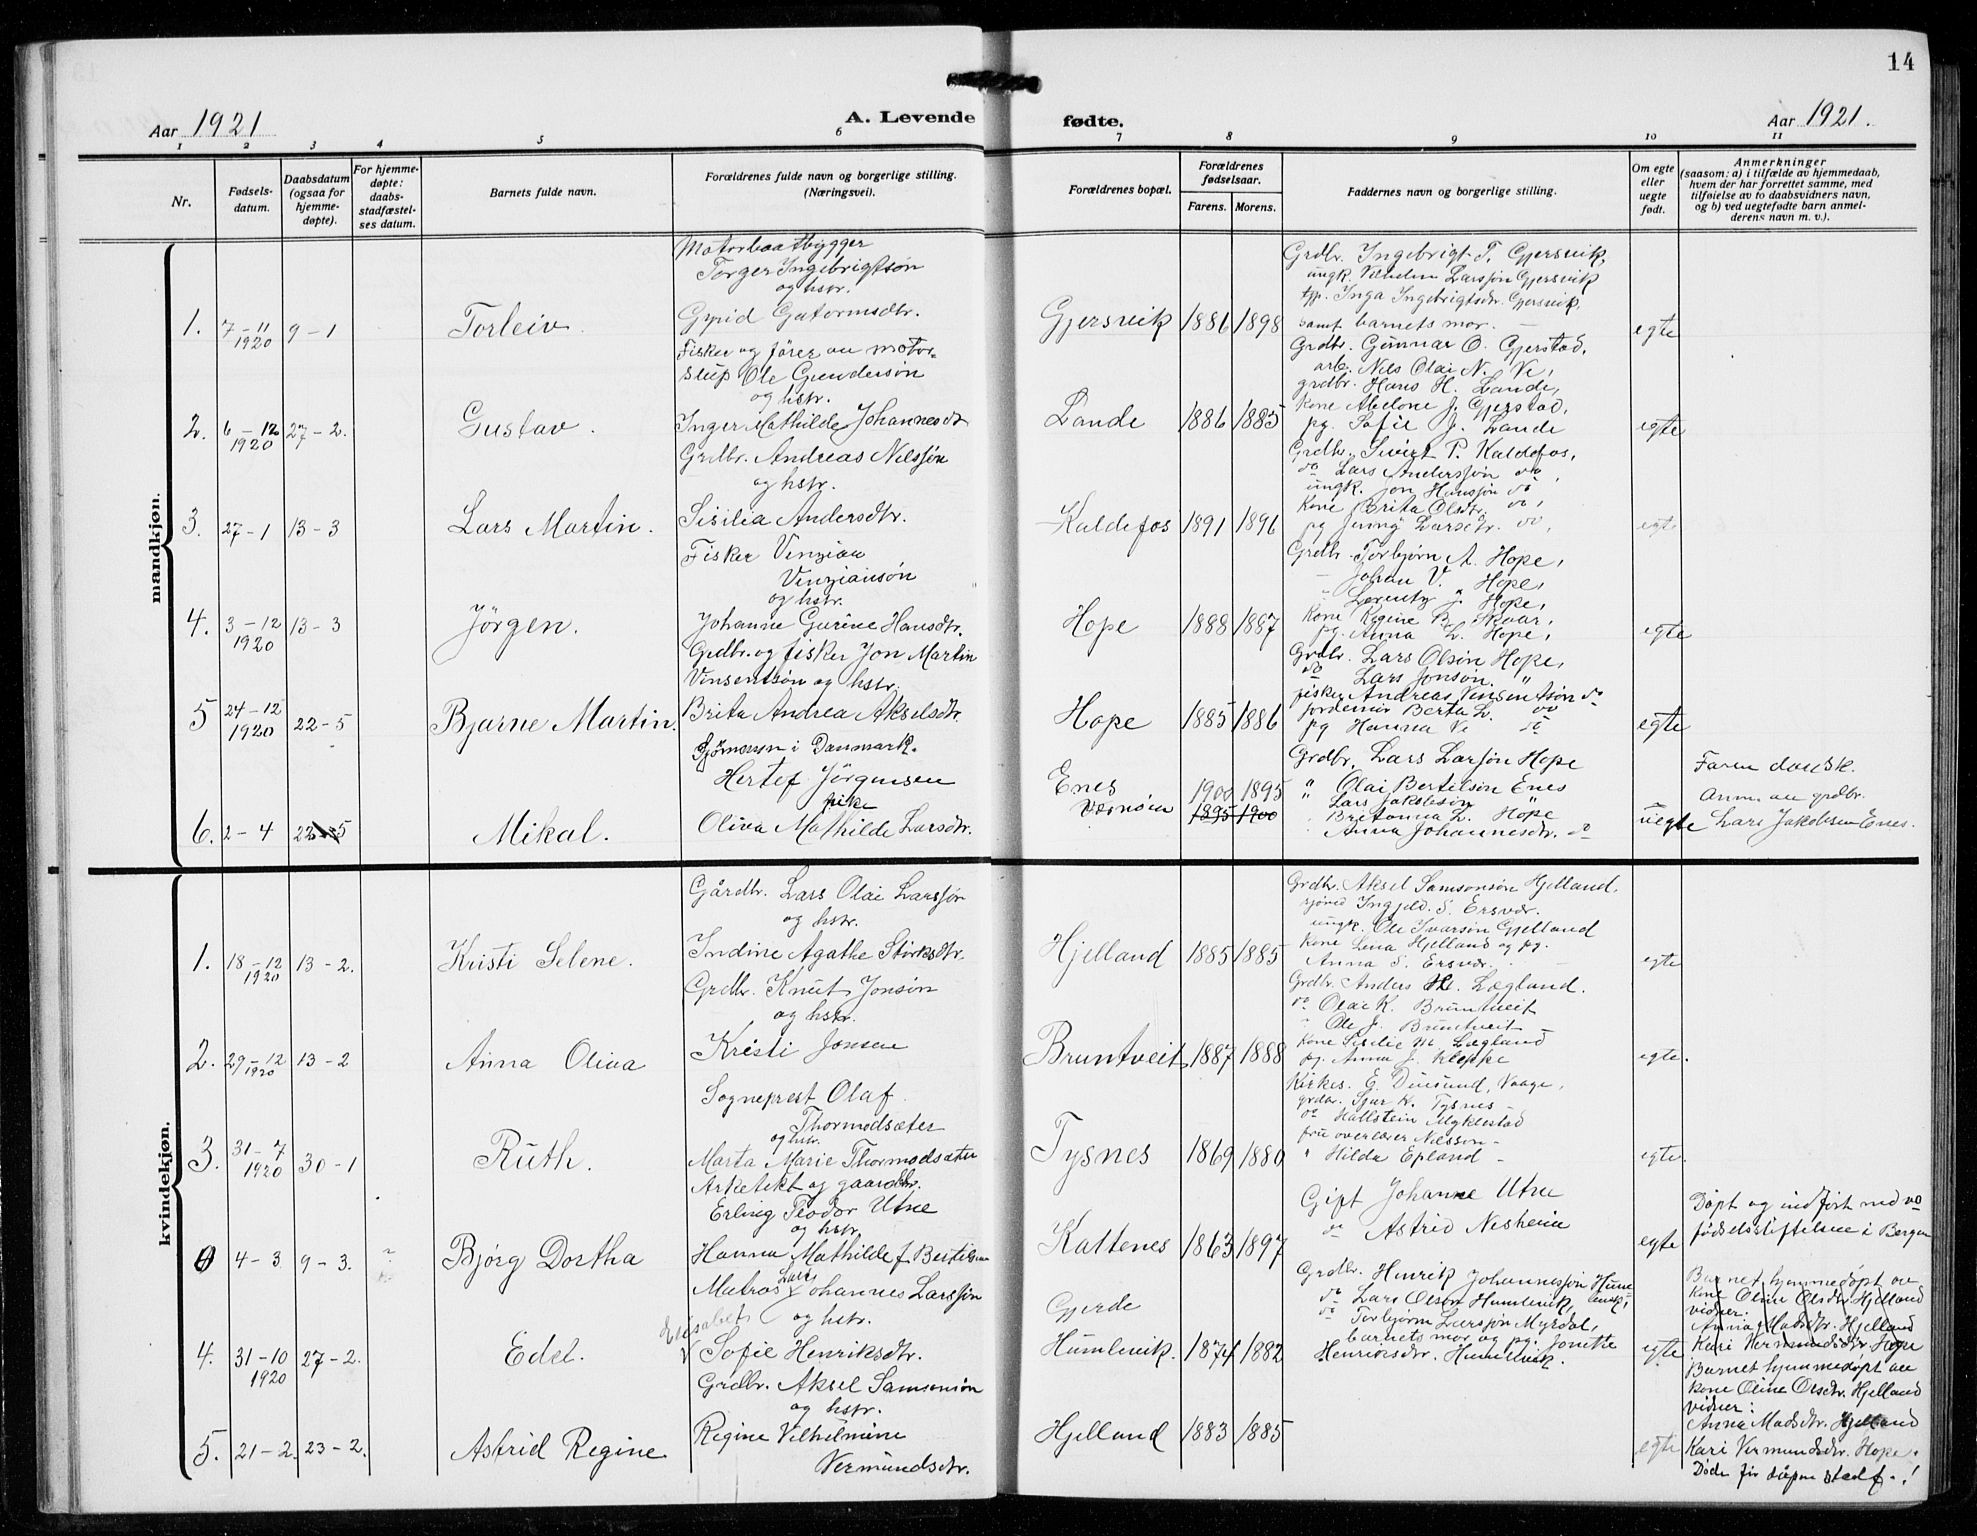 14
Aar 1921
A. Levende
fødte.
Aar 1921.
1 2 3 4 5 6 7 8 9 10 11
Nr.
Fødsels-
datum.
Daabsdatum
(ogsaa for
hjemme-
døpte).
For hjemme-
døpte:
daabs-
stadfæstel-
ses datum.
Barnets fulde navn.
Forældrenes fulde navn og borgerlige stilling.
(Næringsvei).
Forældrenes bopæl.
Forældrenes
fødselsaar.
Farens. Morens.
Faddernes navn og borgerlige stilling.
Om egte
eller
uegte
født.
Anmerkninger
(saasom: a) i tilfælde av hjemmedaab,
hvem der har forrettet samme, med
tilføielse av to daabsvidners navn,
og b) ved uegtefødte barn anmel-
derens navn m. v.).
mandkjøn.
1. 7-11 1920 9-1
Torleiv.
Motorbaatbygger
Torger Ingebrigtsøn
og hstr.
Gyrid Gutormsdtr.
Gjersvik 1886 1898
Grdbr. Ingebrigt T. Gjersvik,
ungk. Vilhelm Larssøn Gjersvik
Inga Ingebrigtsdr. Gjersvik,
samt barnets mor.
egte
2. 6-12 1920 27-2.
Gustav.
Fisker og fører av motor-
slup Ole Gundersøn
og hstr.
Inger Mathilde Johannesdt
Lande 1886 1885
Grdbr. Gunnar O. Gjerstad,
arb. Nils Olai N. Ve,
grdbr. Hans H. Lande,
kone Abelone J. Gjerstad,
pg. Sofie J. Lande
egte
3. 27-1 13-3
Lars Martin.
Grdbr. Andreas Nilssøn
og hstr.
Sisilia Andersdtr.
Kaldefos 1891 1896
Grdbr. Sivert P. Kaldefos,
do Lars Anderssøn do,
ungk. Jon Hanssøn do
kone Brita Olsdtr. do,
pg Jenny Larsdtr. do,
egte
4. 3-12 1920 13-3
Jörgen.
Fisker Venzian
Venziansøn
og hstr.
Johanne Gurine Hansdtr.
Hope 1888 1887
Grdbr. Torbjørn A. Hope,
Johan V. Hope,
Lorentz J. Hope,
kone Regine B. Skaar,
pg. Anna L. Hope,
egte
5 24-12 1920 22-5
Bjarne Martin.
Grdbr. og fisker Jon Martin
Vinsentsøn og hstr.
Brita Andrea Akselsdtr.
Hope 1885 1886
Grdbr. Lars Olsøn Hope,
do Lars Jonsøn. "
fisker Andreas Vinsentsøn do
jordemor Berta L. do
pg Hanna Ve do
egte
6. 2-4 22-5
Mikal.
Sjömann i Danmark.
Hertef Jörgensen
pike
Oliva Mathilde Larsdtr.
Enes
Værnøen
1900 1895
1895 1900
Grdbr. Lars Larsøn Hope
" Olai Bertilsøn Enes
Lars Jakobsøn
Britanna L. Hope
Anna Johannesdtr. do
uegte
Faren dansk.
Anm. av grdbr.
Lars Jakobsen Enes.
kvindekjøn.
1. 18-12 1920 13-2.
Kristi Selene.
Gårdbr. Lars Olai Larssøn
og hstr.
Indine Agathe Störksdtr.
Hjelland 1885 1885
Grdbr. Aksel Samsonsøn Hjelland,
Ingjeld S. Ersvær.
ungk. Ole Ivarsøn Gjelland
kone Lina Hjelland og pg.
Anna S. Ersvær.
egte
2. 29-12 1920 13-2
Anna Oliva
Grdbr. Knut Jonsøn
og hstr.
Kristi Jonsen
Bruntveit 1887 1888
Grdbr. Anders H. Lægland.
do Olai K. Bruntveit
" Ole J. Bruntveit
kone Sisilie M. Lægland
pg. Anna J. Kleppe
egte.
3. 31-7 1920 30-1
Ruth.
Sogneprest Olaf
Thormodsæter
og hstr.
Marta Marie Thormodsæter
Tysnes 1869 1880
Kirkes. E. Duesund, Vaage,
grdbr. Sjur K. Tysnes
do Hallstein Myklestad
fru overlærer Nilsson -
" Hilda Epland -
egte.
0 4-3 9-3. ?
Bjørg Dortha
Arketekt og gaardbr.
Erling Teodor Utne
og hstr.
Hanna Mathilde f. Bertilsen
Kattenes 1863 1897
Gift Johanne Utne
do Astrid Nesheim
egte
Døpt og indført ved
fødselsstiftelsen i Bergen
4. 31-10 1920 27-2.
Edel.
Matros Lars Johannes Larssøn
og hstr.
Elisabet
V Sofie Henriksdtr.
Gjerde
Humlevik. 1874 1882
Grdbr. Henrik Johannessøn Humlevik,
do Lars Olsøn Humlevik,
do Torbjørn Larssøn Myrdal,
barnets mor og pg. Jonette
Henriksdtr. Humlevik.
egte
Barnet hjemmedøpt av
kone Oline Olsdtr. Hjelland
vidner:
Anna Madsdtr. Hjelland
Kari Vermundsdtr. Hope
5. 21-2. 23-2.
Astrid Regine
Grdbr. Aksel Samsonsøn
og hstr.
Regine Vilhelmine
Vermundsdtr.
Hjelland 1883 1885
egte
Barnet hjemmedøpt av
kone Oline Olsdtr. Hjelland
vidner:
Anna Madsdtr. Hjelland
Kari Vermundsdtr. Hope.
Døde før dåpen stadf.!